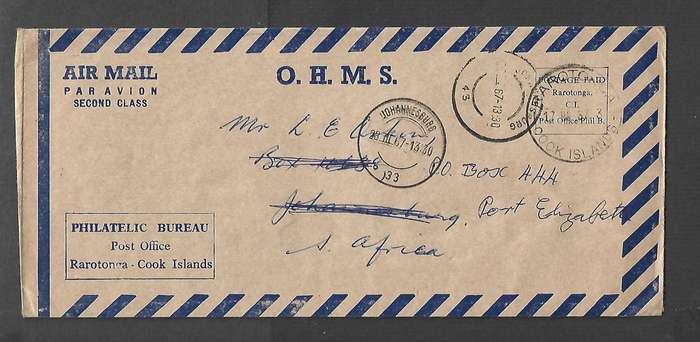 AIR MAIL
PAR AVION
SECOND CLASS
O. H. M. S.
POSTAGE PAID
Rarotonga,
C.I.
Post Office Mail B.
COOK ISLANDS
67-13 30
43
JOHANNESBURG
29 III 67-13 30
33
Mr L. E.
Box
P.O. Box 444
Johannesburg, Port Elizabeth
S. Africa
PHILATELIC BUREAU
Post Office
Rarotonga - Cook Islands